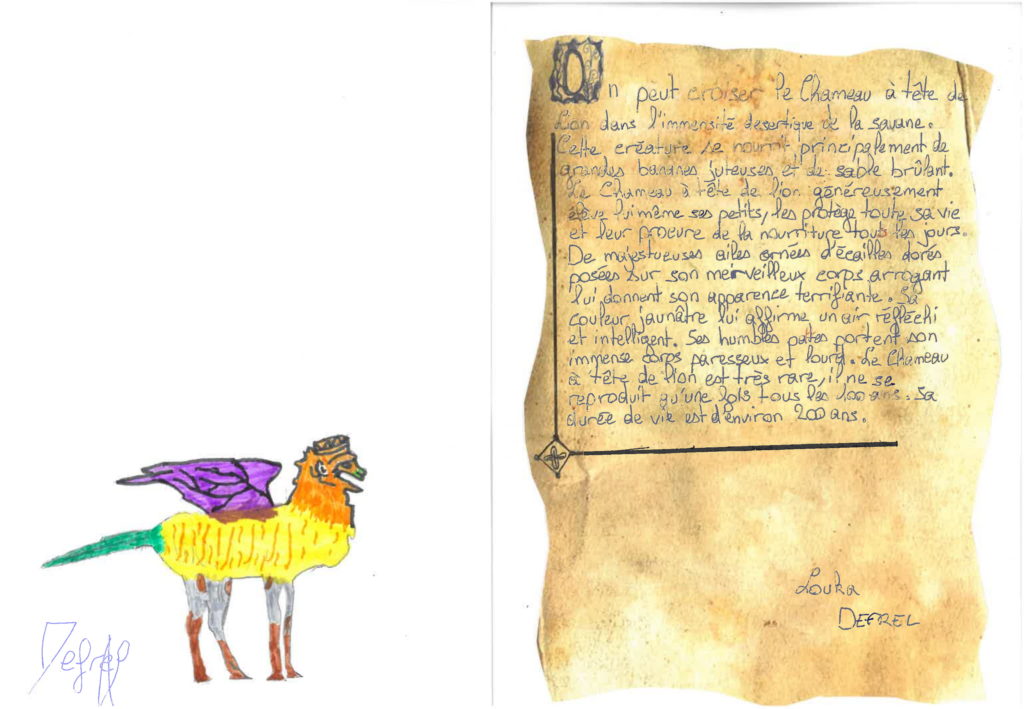 On peut croiser le Chameau à tête de
Lion dans l'immensité desertique de la savane.
Cette créature se nourrit principalement de
grandes bananes juteuses et de sable brûlant.
Le Chameau à tête de lion généreusement
élève lui même ses petits, les protège toute sa vie
et leur procure de la nourriture tout les jours.
De majestueuses ailes ornées d'écailles dorés
posées sur son merveilleux corps arrogant
lui donnent son apparence terrifiante. Sa
couleur jaunâtre lui affirme un air réfléchi
et intelligent. Ses humbles pates portent son
immense corps paresseux et lourd. Le Chameau
à tête de lion est très rare, il ne se
reproduit qu'une fois tous les 100 ans. Sa
durée de vie est d'environ 200 ans.
Louka
DEFREL
Defrel